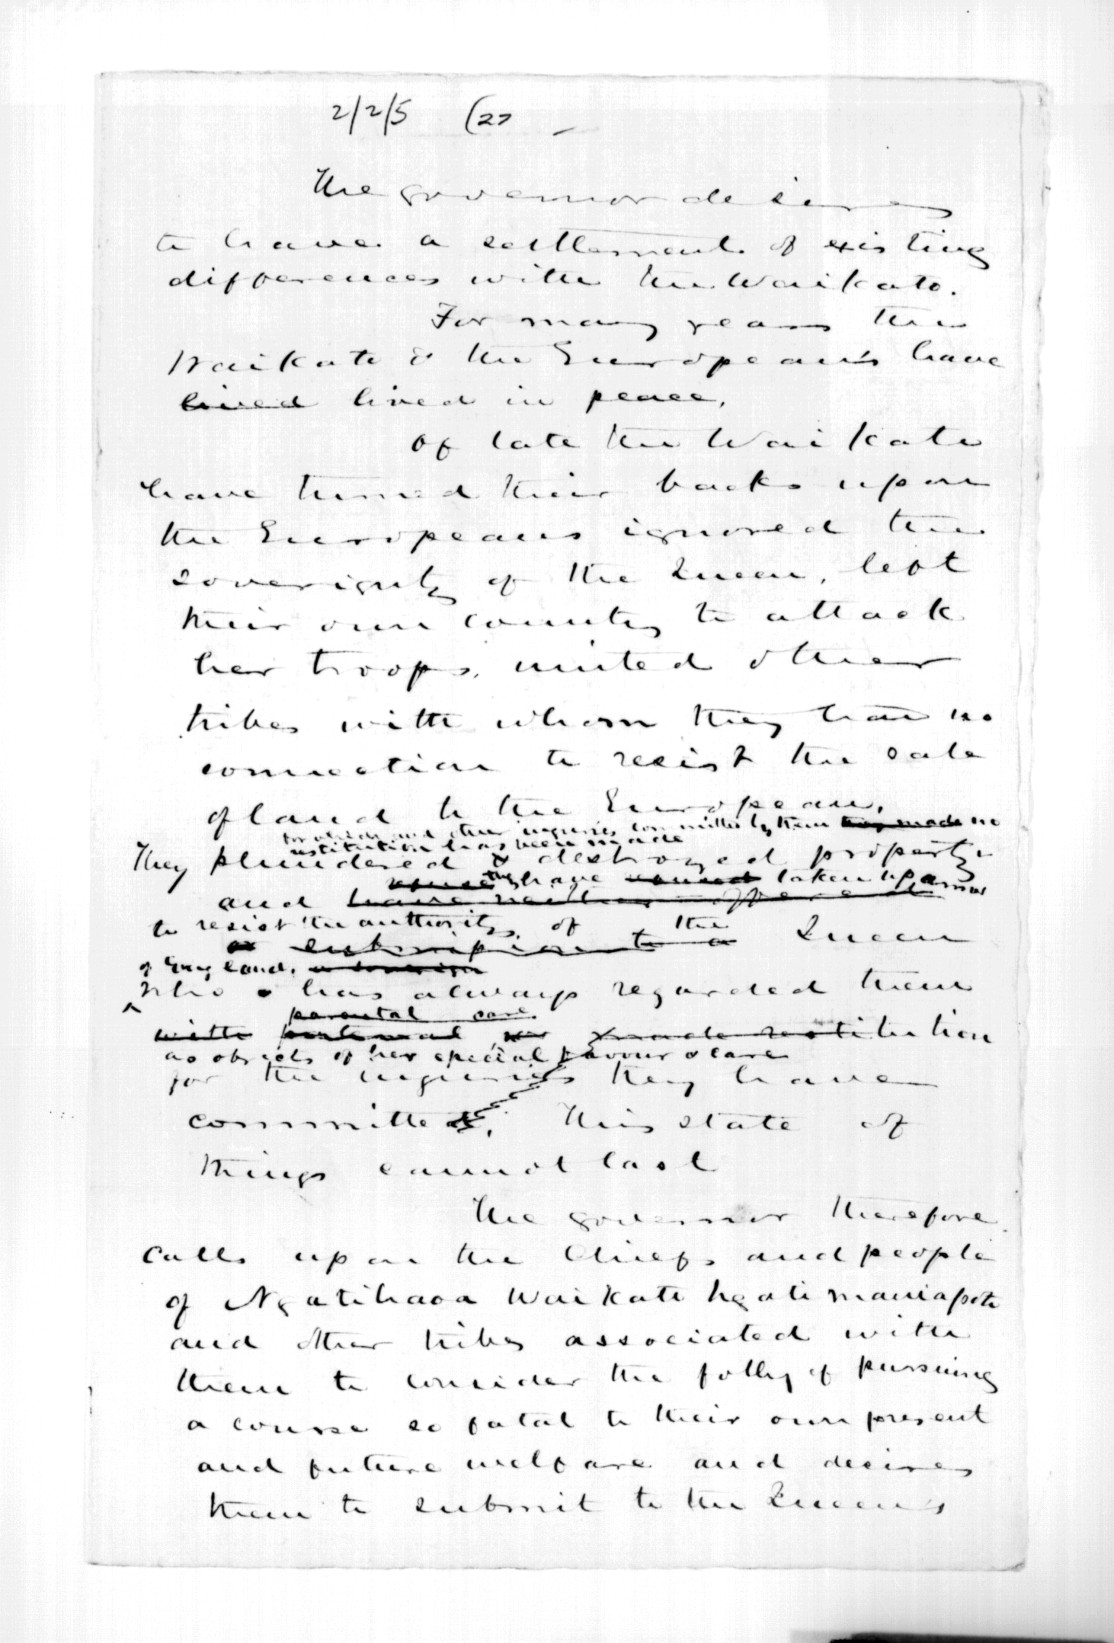 2/2/5 (27
The Governor desires
to have a settlement of existing
differences with the Waikato.
For many years the
Waikato & the Europeans have
lived lived in peace,
of late the Waikato
have turned their backs upon
the Europeans ignored the
soverignty of the Queen, left
their own country to attack
her troops, united other
tribes with whom they had no
connection to resist the sale
of land to the European.
for which and other injuries committed by them they made no
restitution has been made
They plundered & destroyed property
and they have taken up arms
to resist the authority of the Queen
submission to a
of England.
who has always regarded them
parental care
with paternal made restitution
as objects of her special favour & care
for the injuries they have
committed, This state of
things cannot last
The Governor therefore
calls upon the Chiefs and people
of Ngatihaoa Waikato Ngatimaniapoto
and other tribes associated with
them to consider the folly of pursuing
a course so fatal to their own present
and future welfare and desires
them to submit to the Queen's